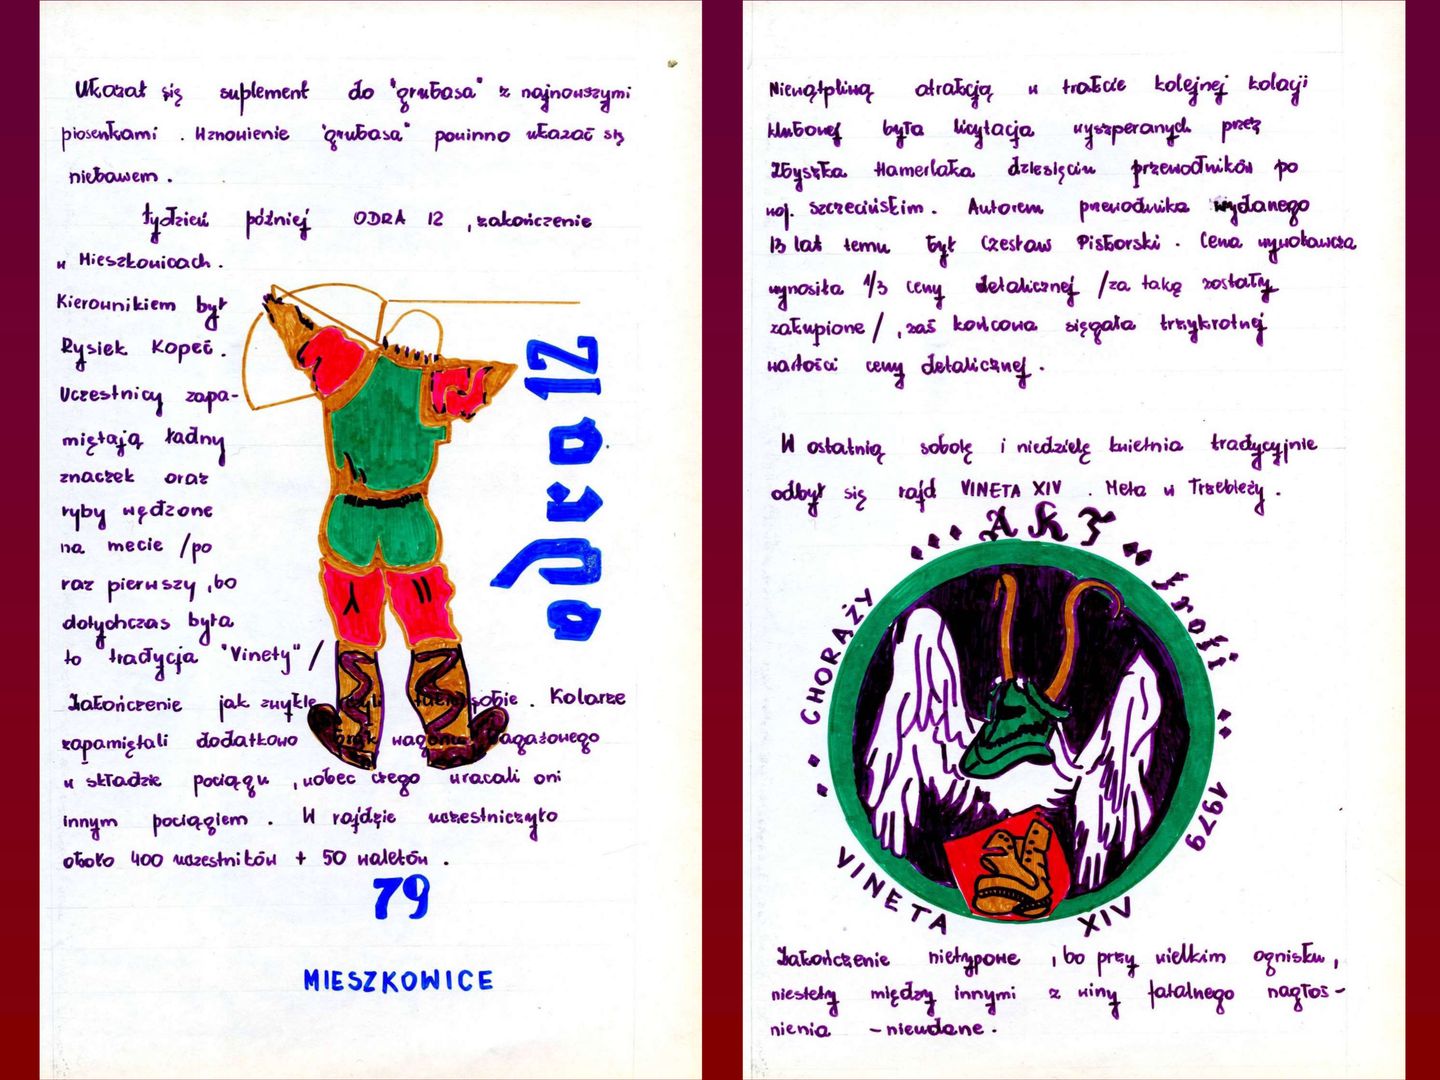 Ukazał się suplement do "grubasa" z najnowszymi
piosenkami. Wznowienie "grubasa" powinno ukazać się
niebawem.
tydzień później ODRA 12, zakończenie
w Mieszkowicach.
Kierownikiem był
Rysiek Kopeć.
Uczestnicy zapa-
miętają ładny
znaczek oraz
ryby wędzone
na mecie /po
raz pierwszy, bo
dotychczas była
to tradycja "Vinety"/
Zakończenie jak zwykle sobie. Kolarze
zapamiętali dodatkowo brak wagonu bagażowego
w składzie pociągu, wobec czego wracali oni
innym pociągiem. W rajdzie uczestniczyło
około 400 uczestników + 50 waletów.
odra 12
79
MIESZKOWICE
Niewątpliwą atrakcją w trakcie kolejnej kolacji
klubowej była licytacja wyszperanych przez
Zbyszka Hamerlaka dziesięciu przewodników po
woj. szczecińskim. Autorem przewodnika wydanego
13 lat temu był Czesław Piskorski. Cena wywoławcza
wynosiła 1/3 ceny detalicznej /za taką zostały
zakupione/, zaś końcowa sięgała trzykrotnej
wartości ceny detalicznej.
W ostatnią sobotę i niedzielę kwietnia tradycyjnie
odbył się rajd VINETA XIV. Meta w Trzebieży.
AKT
trofi
CHORĄŻY
1979
VINETA XIV
Zakończenie nietypowe, bo przy wielkim ognisku,
niestety między innymi z winy fatalnego nagłoś-
nienia - nieudane.